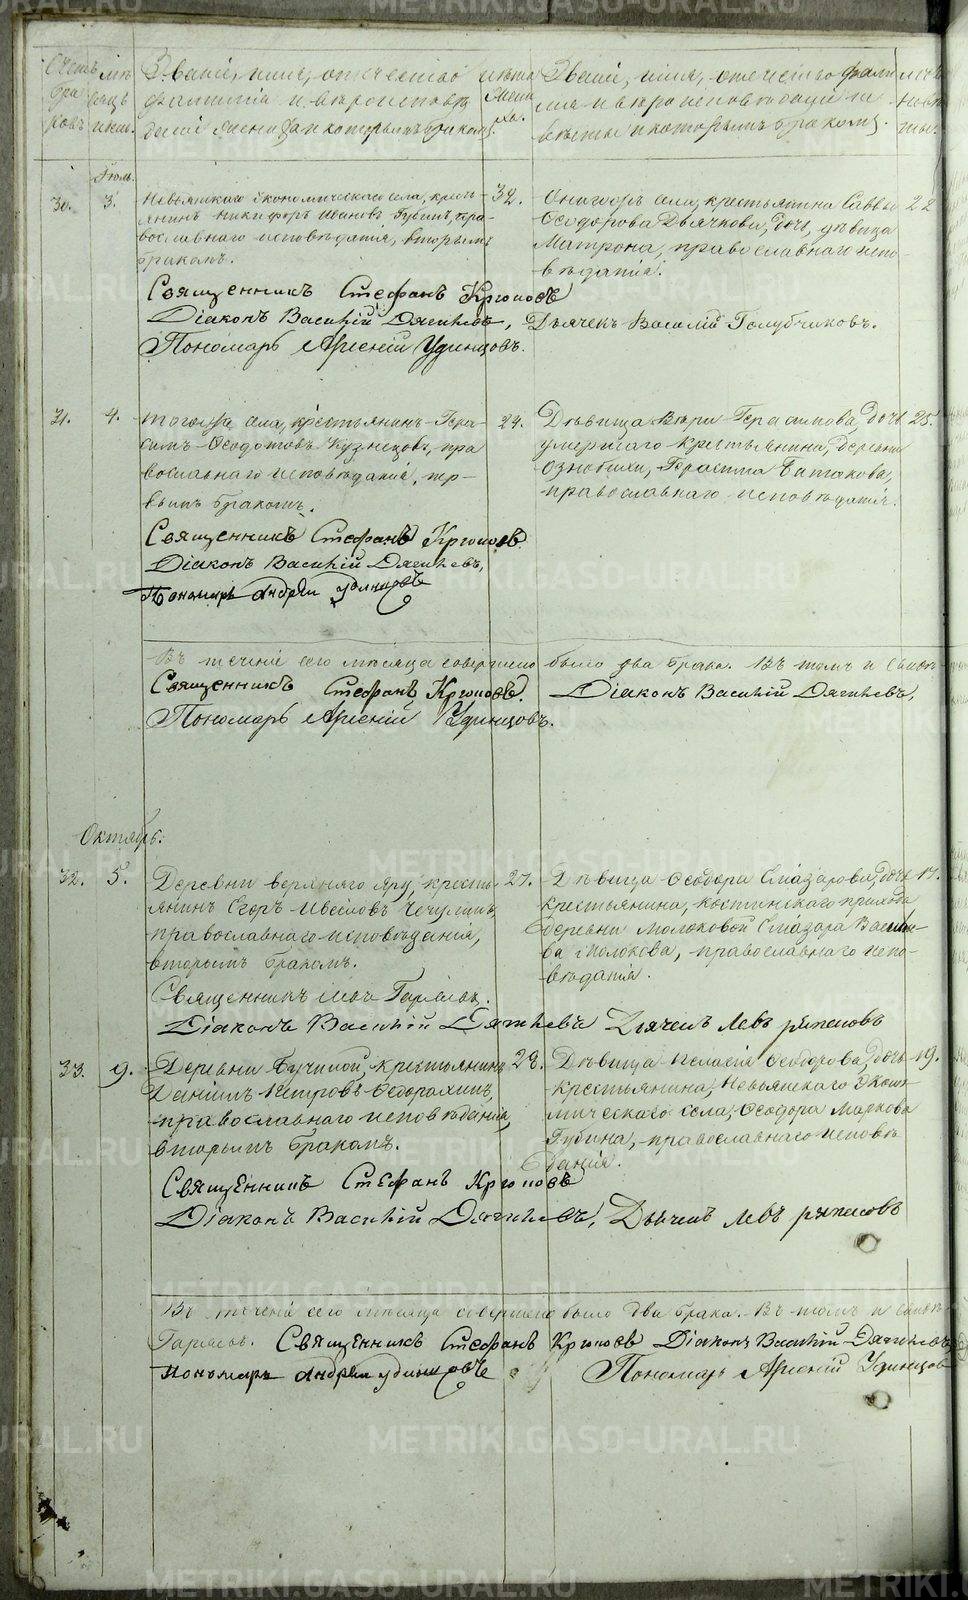 Счетъ браковъ
мѣсяцъ и число
Званіе, имя, отчество
фамилія и вѣроисповѣ
даніе жениха и которымъ бракомъ.
лѣта жениха.
Званіе, имя, отчество фами
лія и вѣроисповѣданіе не
вѣсты и которымъ бракомъ.
лѣта невѣсты.
Іюль.
30. 3. Невьянскаго экономическаго села, кресть- 32.
янинъ Никифоръ Ивановъ Губинъ, пра
вославнаго исповѣданія, вторымъ
бракомъ.
Оногожъ села, крестьянина Саввы 22
Ѳеодорова Дьячкова, дочь, дѣвица
Матрона, православнаго испо-
вѣданія.
Священникъ Стефанъ Крюковъ
Діаконъ Василій Дягилевъ, Дьячекъ Василій Голубчиковъ.
Пономарь Арсеній Удинцовъ.
31. 4. того же села, крестьянинъ Гера- 24.
симъ Ѳеодотовъ Кузнецовъ, пра
вославнаго исповѣданія, пер-
вымъ бракомъ.
Дѣвица Герасимова, дочь 25.
умершаго крестьянина, деревни
Герасима
православнаго исповѣданія.
Священникъ Стефанъ Крюковъ.
Діаконъ Василій Дягилевъ,
Пономарь Андрей Удинцовъ
Въ теченіе сего мѣсяца совершено было два брака. Въ томъ и
Священникъ Стефанъ Крюковъ. Діаконъ Василій Дягилевъ,
Пономарь Арсеній Удинцовъ.
Октябрь.
32. 5. Деревни верхняго яру, кресть- 27.
янинъ Егоръ Чечулинъ,
православнаго исповѣданія,
вторымъ бракомъ.
Дѣвица Ѳеодора дочь 17.
крестьянина, костинскаго прихода
деревни Молоковой
ва Молокова, православнаго испо-
вѣданія.
Священникъ
Діаконъ Василій Дягилевъ Дьячекъ Левъ
33. 9. Деревни крестьянинъ 28.
Даніилъ Петровъ
православнаго исповѣданія,
вторымъ бракомъ.
Дѣвица Пелагія Ѳеодорова, дочь 19.
крестьянина, Невьянскаго эконо
мическаго села, Ѳеодора Маркова
Губина, православнаго исповѣ
данія.
Священникъ Стефанъ Крюковъ
Діаконъ Василій Дягилевъ, Дьячекъ Левъ
Въ теченіе сего мѣсяца совершено было два брака. Въ томъ и
Священникъ Стефанъ Крюковъ Діаконъ Василій Дягилевъ
Пономарь Андрей Удинцовъ Пономарь Арсеній Удинцовъ
METRIKI.GASO-URAL.RU